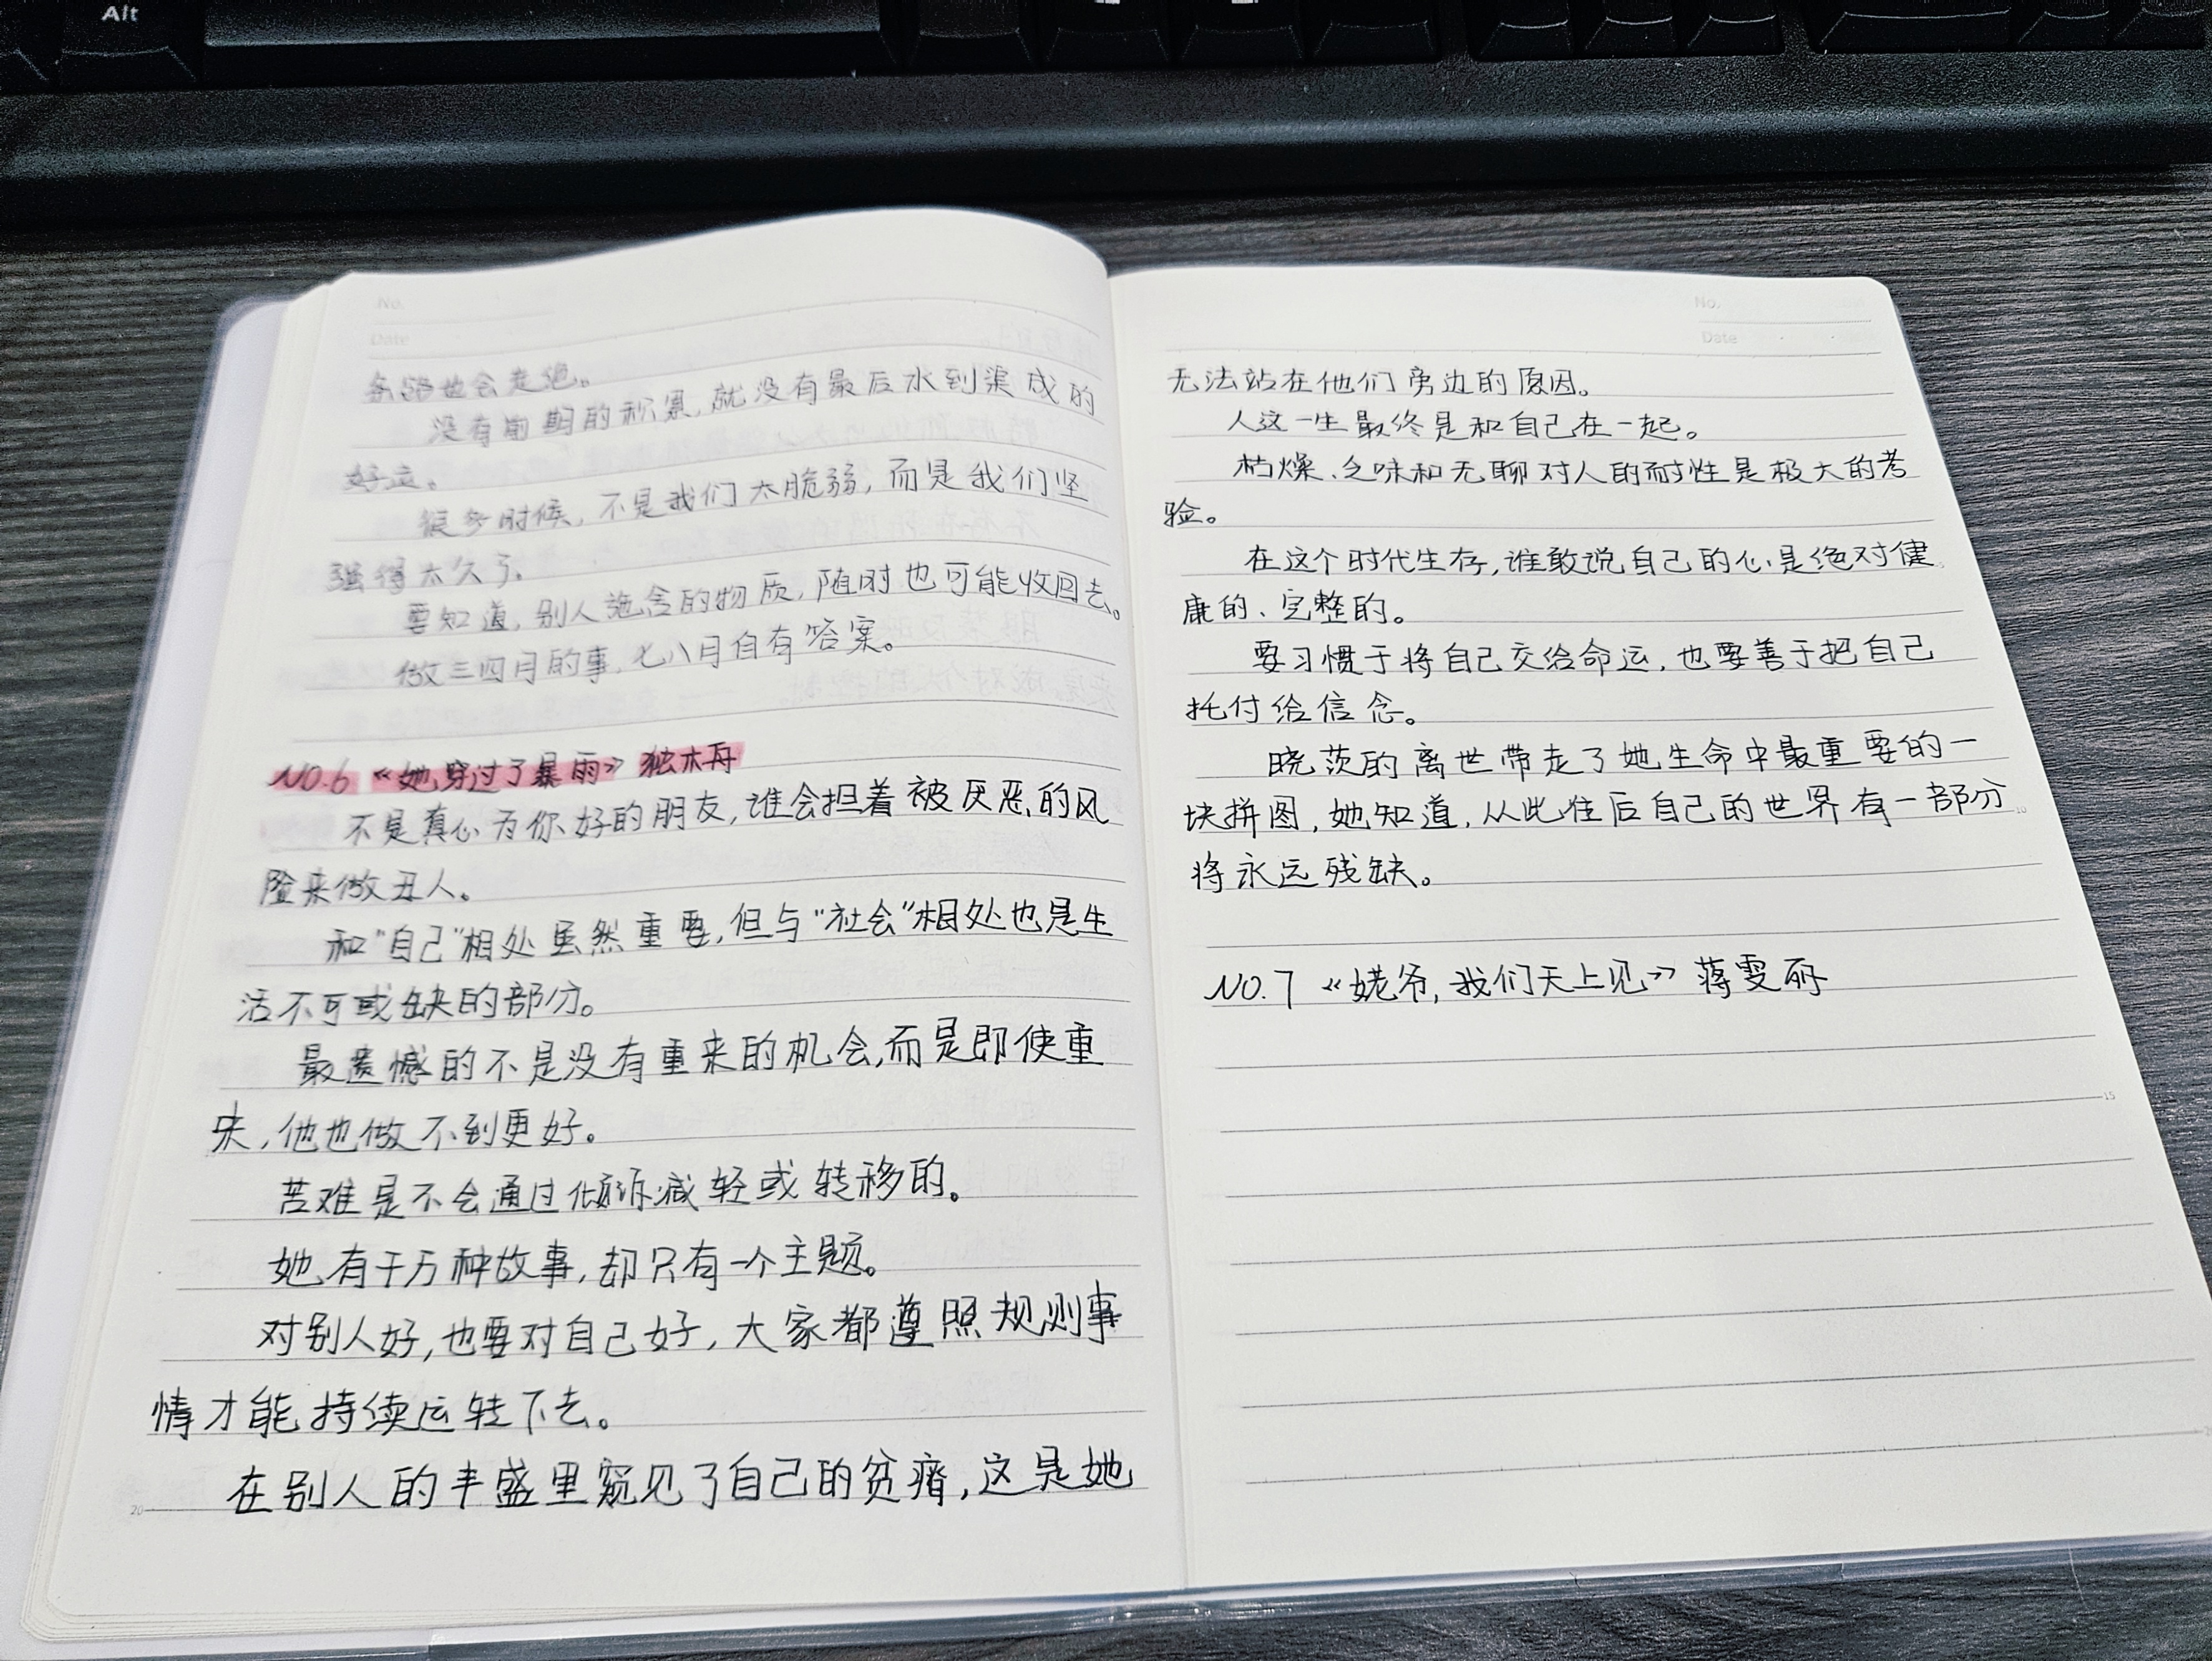 Alt
No.
Date
条路也会走绝。
没有前期的积累,就没有最后水到渠成的
好运。
很多时候,不是我们太脆弱,而是我们坚
强得太久了。
要知道,别人施舍的物质,随时也可能收回去。
做三四月的事,七八月自有答案。
NO.6 《她穿过了暴雨》 独木舟
不是真心为你好的朋友,谁会担着被厌恶的风
险来做丑人。
和“自己”相处虽然重要,但与“社会”相处也是生
活不可或缺的部分。
最遗憾的不是没有重来的机会,而是即使重
来,他也做不到更好。
苦难是不会通过倾诉减轻或转移的。
她有千万种故事,却只有一个主题。
对别人好,也要对自己好,大家都遵照规则事
情才能持续运转下去。
在别人的丰盛里窥见了自己的贫瘠,这是她
20
No.
Date
无法站在他们旁边的原因。
人这一生最终是和自己在一起。
枯燥、乏味和无聊对人的耐性是极大的考
验。
在这个时代生存,谁敢说自己的心是绝对健
康的、完整的。
要习惯于将自己交给命运,也要善于把自己
托付给信念。
晓茨的离世带走了她生命中最重要的一
块拼图,她知道,从此往后自己的世界有一部分
10
将永远残缺。
NO.7 《姥爷,我们天上见》 蒋雯丽
15